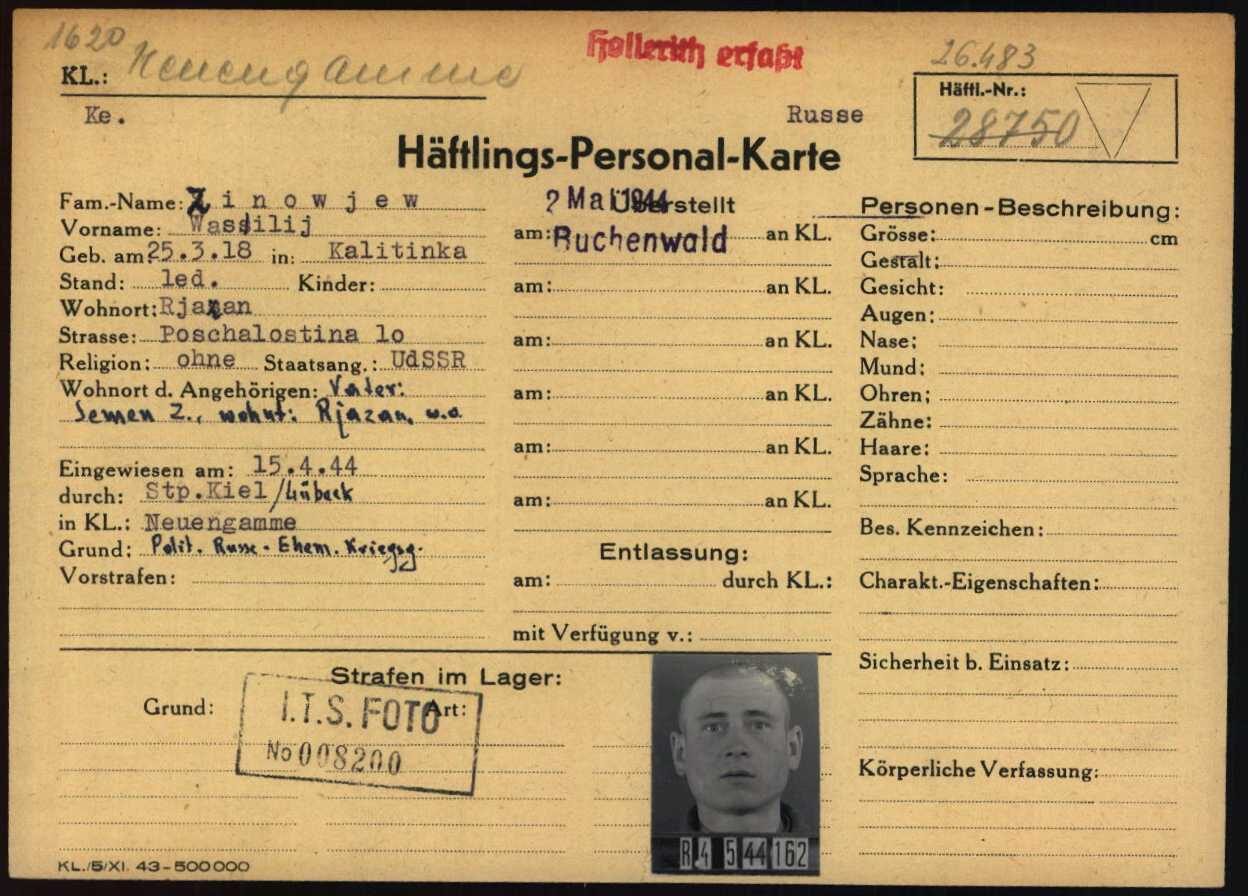 1620
KL.: Neuengamme
Hollerith erfaßt
26.483
Häftl.-Nr.:
28750
Ke.
Russe
Häftlings-Personal-Karte
Fam.-Name: Zinowjew
Vorname: Wassilij
Geb. am 25.3.18 in: Kalitinka
Stand: led. Kinder:
Wohnort: Rjazan
Strasse: Poschalostina 10
Religion: ohne Staatsang.: UdSSR
Wohnort d. Angehörigen: Vater:
Semen Z., wohnt: Rjazan, w.o
Eingewiesen am: 15.4.44
durch: Stp.Kiel/Lübeck
in KL.: Neuengamme
Grund: Polit. Russe - Ehem. Kriegsg.
Vorstrafen:
2 Mai 1944
Überstellt
am: Buchenwald an KL.
am: an KL.
am: an KL.
am: an KL.
am: an KL.
am: an KL.
Entlassung:
am: durch KL.:
mit Verfügung v.:
Personen-Beschreibung:
Grösse: cm
Gestalt:
Gesicht:
Augen:
Nase:
Mund:
Ohren:
Zähne:
Haare:
Sprache:
Bes. Kennzeichen:
Charakt.-Eigenschaften:
Sicherheit b. Einsatz:
Körperliche Verfassung:
Strafen im Lager:
Grund: Art:
I.T.S. FOTO
No 008200
R 4 5 44 162
KL./5/XI. 43-500000